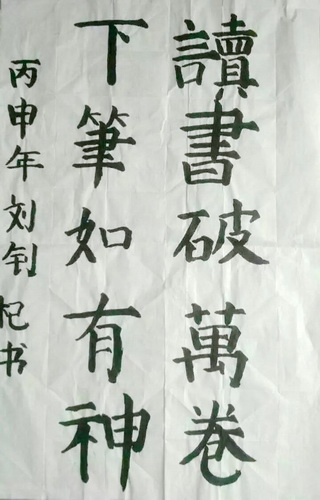 讀書破萬卷
下筆如有神
丙申年刘钊杞书